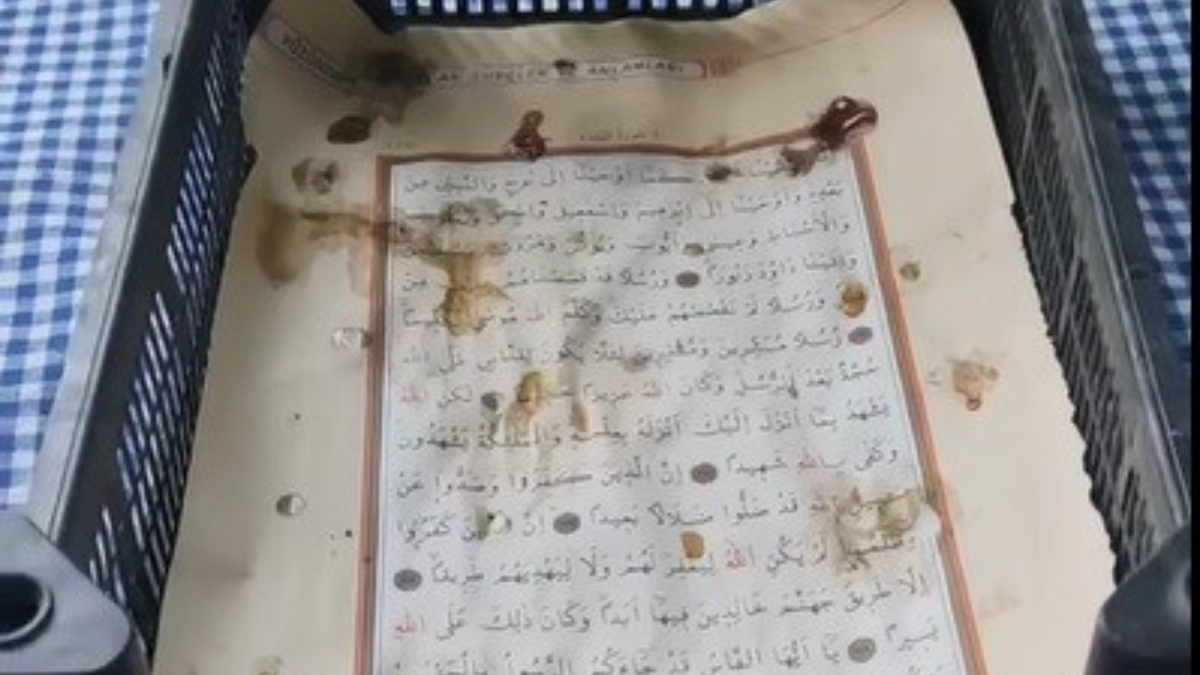 SURELER VE ANLAMLARI
كَمَٓا اَوْحَيْنَٓا اِلٰى نُوحٍ وَالنَّبِيّ۪نَ مِنْ
بَعْدِه۪ وَاَوْحَيْنَٓا اِلٰٓى اِبْرٰه۪يمَ وَاِسْمٰع۪يلَ وَاِسْحٰقَ
وَالْاَسْبَاطِ وَع۪يسٰى وَاَيُّوبَ وَيُونُسَ وَهٰرُونَ
وَاٰتَيْنَا دَاوُ۫دَ زَبُورًا وَرُسُلًا قَدْ قَصَصْنَاهُمْ مِنْ
وَرُسُلًا لَمْ نَقْصُصْهُمْ عَلَيْكَ وَكَلَّمَ اللّٰهُ مُوسٰى تَكْل۪يمًا
رُسُلًا مُبَشِّر۪ينَ وَمُنْذِر۪ينَ لِئَلَّا يَكُونَ لِلنَّاسِ عَلَى اللّٰهِ
حُجَّةٌ بَعْدَ الرُّسُلِ وَكَانَ اللّٰهُ عَز۪يزًا لٰكِنِ اللّٰهُ
يَشْهَدُ بِمَٓا اَنْزَلَ اِلَيْكَ اَنْزَلَهُ بِعِلْمِه۪ وَالْمَلٰٓئِكَةُ يَشْهَدُونَ
وَكَفٰى بِاللّٰهِ شَه۪يدًا اِنَّ الَّذ۪ينَ كَفَرُوا وَصَدُّوا عَنْ
اللّٰهِ قَدْ ضَلُّوا ضَلَالًا بَع۪يدًا اِنَّ الَّذ۪ينَ كَفَرُوا
لَمْ يَكُنِ اللّٰهُ لِيَغْفِرَ لَهُمْ وَلَا لِيَهْدِيَهُمْ طَر۪يقًا
اِلَّا طَر۪يقَ جَهَنَّمَ خَالِد۪ينَ ف۪يهَٓا اَبَدًا وَكَانَ ذٰلِكَ عَلَى اللّٰهِ
يَس۪يرًا يَٓا اَيُّهَا النَّاسُ قَدْ جَٓاءَكُمُ الرَّسُولُ بِالْحَقِّ مِنْ